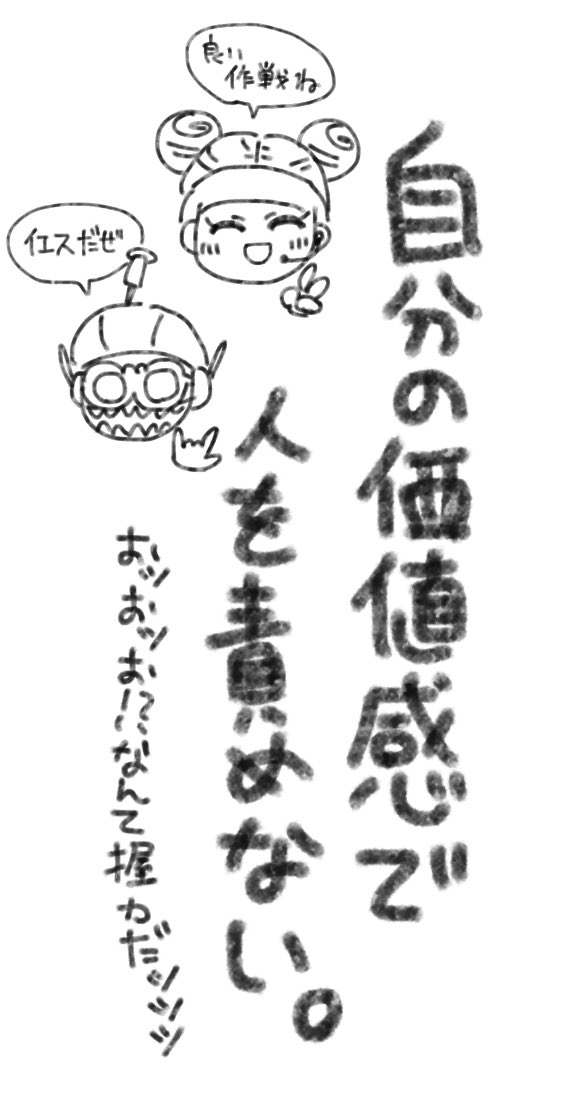 良い
作戦ね
イエスだぜ
自分の価値感で
人を責めない。
おッおッお!?なんて握力だッッッ